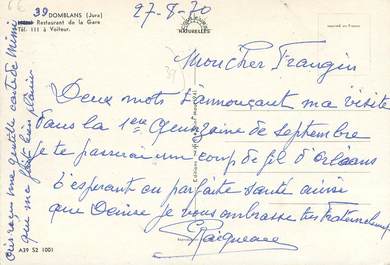 39 DOMBLANS (Jura)
Restaurant de la Gare
Tél. 111 à Voiteur.
27-8-70
NATURELLES
Mon cher Frangin
Deux mots t'annonçant ma visite
dans la 1ère Quinzaine de septembre
je te passerai un coup de fil d'Orléans
t'esperant en parfaite santé ainsi
que Denise je vous embrasse très fraternellement
A39 52 1001
ai reçu une gentille carte de Mimi
que me fait bien plaisir